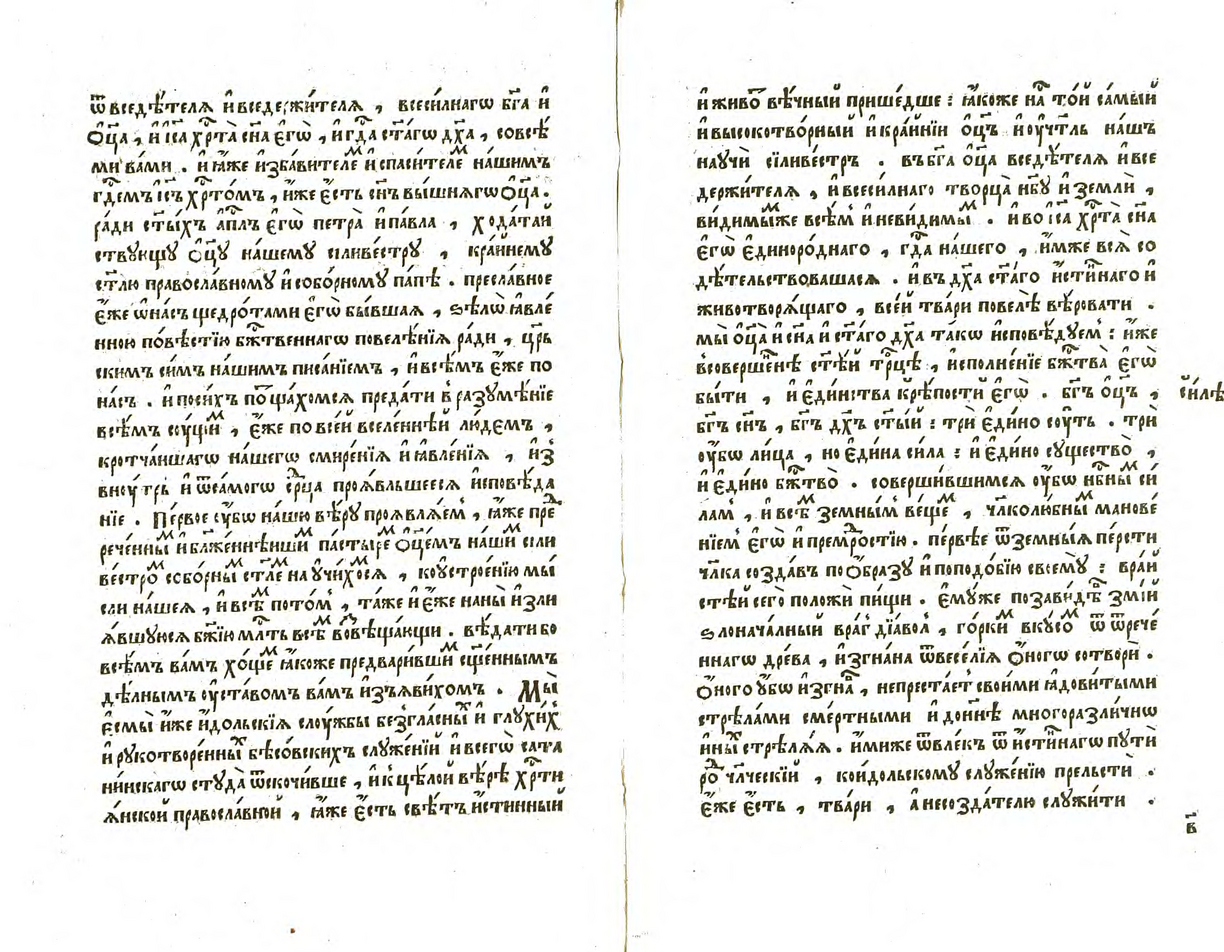 ѿ вседѣ́телѧ и҆ вседержи́телѧ , всеси́лнагѡ бг҃а и҆
ѻ҆ц҃а , и҆ і҆са хр҇та̀ сн҃а є҆гѡ̀ , и҆ гд҇а ст҃а́гѡ дх҃а , со всѣ́
ми ва́ми . и҆ ꙗ҆́же и҆зба́вителеⷨ и҆ спаси́телеⷨ на́шимъ
гд҇емъ і҆с҃ъ хр҇то́мъ , и҆́же є҆́сть сн҃ъ вы́шнѧгѡ ѻ҆ц҃а .
ра́ди ст҃ы́хъ а҆пⷭ҇лъ є҆гѡ̀ петра̀ и҆ па́вла , хода́тай
ствꙋющꙋ ѻ҆ц҃ꙋ на́шемꙋ сіливе́стрꙋ , кра́йнемꙋ
ст҃лю правосла́вномꙋ и҆ собо́рномꙋ па́пѣ . пресла́вное
є҆́же ѡ҆ на́съ щедро́тами є҆гѡ̀ бы́вшаѧ , ѕѣлѡ̀ ꙗ҆вле́
нною по́вѣстїю бж҇твеннагѡ повелѣ́нїѧ ра́ди , цр҃ь
скимъ си́мъ на́шимъ писа́нїемъ , и҆ всѣ́мъ є҆́же по
на́съ . и҆ по си́хъ потща́хомсѧ преда́ти в̾ разꙋмѣ́нїе
всѣ́мъ сꙋ́щиⷨ , є҆́же по все́й вселе́ннѣй лю́демъ ,
кротча́ишагѡ на́шегѡ смире́нїѧ и҆ ꙗ҆вле́нїѧ , и҆з̾
внꙋ́трь и҆ ѿ са́могѡ ср҇ца проѧ́вльшеесѧ и҆сповѣ́да
нїе . Пе́рвое ᲂу҆́бѡ на́шю вѣ́рꙋ проѧвлѧ́емъ , ꙗ҆́же пре
рече́нныⷨ и҆ бл҃же́ннѣишиⷨ па́стыреⷨ ѻ҆ц҃емъ на́шиⷨ сіли
ве́строⷨ собо́рныⷨ ст҃леⷨ наꙋчи́хосѧ , ко ᲂу҆строе́нїю мы́
сли на́шеѧ , и҆ всѣⷨ пото́мⷨ , та́же и҆ є҆́же на ны̀ и҆злїи
ѧ́вшꙋюсѧ бж҃їю млⷭ҇ть всѣⷨ во́звѣща́ющи . вѣ́дати бо
всѣ́мъ ва́мъ хо́щеⷨ ꙗ҆́коже предвари́вшиⷨ сщ҃е́ннымъ
дѣ́лнымъ ᲂу҆ста́вомъ ва́мъ и҆з̾ѧви́хомъ . Мы̀
є҆смы̀ и҆́же и҆́дольскїѧ слꙋ́жбы безгла́сныⷯ и҆ глꙋхи́х
и҆ рꙋкотворе́нныⷯ бѣсо́вскихъ слꙋже́нїй и҆ всегѡ̀ сата
ни́нскагѡ стꙋда̀ ѿскочи́вше , и҆ к̾ цѣ́лой вѣ́рѣ хр҇ти
ѧ́нской правосла́вной , ꙗ҆́же є҆́сть свѣ́тъ и҆́стинный
и҆ живо́т вѣ́чный прише́дше : ꙗ҆́коже на́с то́й са́мый
и҆ высокотво́рный и҆ кра́йнїи ѻ҆ц҃ъ и҆ ᲂу҆чт҃ль на́шъ
наꙋчѝ сіливе́стръ . въ бг҃а ѻ҆ц҃а вседѣ́телѧ и҆ все
держи́телѧ , и҆ всеси́лнаго творца̀ нб҃ꙋ и҆ землѝ ,
ви́димыⷨже всѣ́мⷨ и҆ неви́димыⷨ . и҆ во і҆са хр҇та̀ сн҃а
є҆гѡ̀ є҆диноро́днаго , гд҇а на́шего , и҆́мже всѧ̀ со
дѣ́тельствовашасѧ . и҆ въ дх҃а ст҃а́го и҆́стиннаго и҆
животворѧ́щаго , все́й тва́ри повелѣ̀ вѣ́ровати .
мы̀ ѻ҆ц҃а и҆ сн҃а и҆ ст҃а́го дх҃а та́кѡ и҆сповѣ́дꙋемъ : и҆́же
в̾соверше́нѣ ст҃ѣ́й тр҇цѣ , и҆сполне́нїе бж҇тва̀ є҆гѡ̀
бы́ти , и҆ є҆ди́нства крѣ́пости є҆гѡ̀ . бг҃ъ ѻ҆ц҃ъ , си́лѣ
бг҃ъ сн҃ъ , бг҃ъ дх҃ъ ст҃ы́й : трѝ є҆ди́но сꙋ́ть . трѝ
ᲂу҆́бѡ ли́ца , но є҆ди́на си́ла : и҆ є҆ди́но сꙋщество̀ ,
и҆ є҆ди́но бж҇тво̀ . соверши́вшимсѧ ᲂу҆́бѡ нб҃ныⷨ си́
ламⷨ , и҆ всѣⷨ земны́мⷨ ве́щеⷨ , чл҃колю́бныⷨ манове́
нїемⷨ є҆гѡ̀ и҆ премⷣростїю . пе́рвѣе ѿ земны́ѧ пе́рсти
чл҃ка созда́въ по ѻ҆́бразꙋ и҆ по подо́бїю своемꙋ̀ : в̾ра́й
ст҃ѣ́й сего̀ положѝ пи́щи . є҆мꙋ́же позави́дѣⷡ ѕмі́й
ѕлонача́лный вра́г дїа́вол , го́ркиⷨ вкꙋ́соⷨ ѿ ѿрече́
ннаго дре́ва , и҆згна́на ѿ весе́лїѧ ѻ҆́ного сотворѝ .
ѻ҆́ного ᲂу҆́бѡ и҆згна́в , непреста́ет свои́ми ꙗ҆дови́тыми
стрѣ́лами сме́ртными и҆ до ннѣ многоразли́чнѡ
и҆ны́й стрѣлѧ́ѧ . и҆́миже ѿвле́къ ѿ и҆́стиннагѡ пꙋтѝ
ро́д чл҃ческїй , ко и҆́дольскомꙋ слꙋже́нїю прельстѝ .
є҆́же є҆́сть , тва́ри , а҆ не созда́телю слꙋжи́ти .
в҃